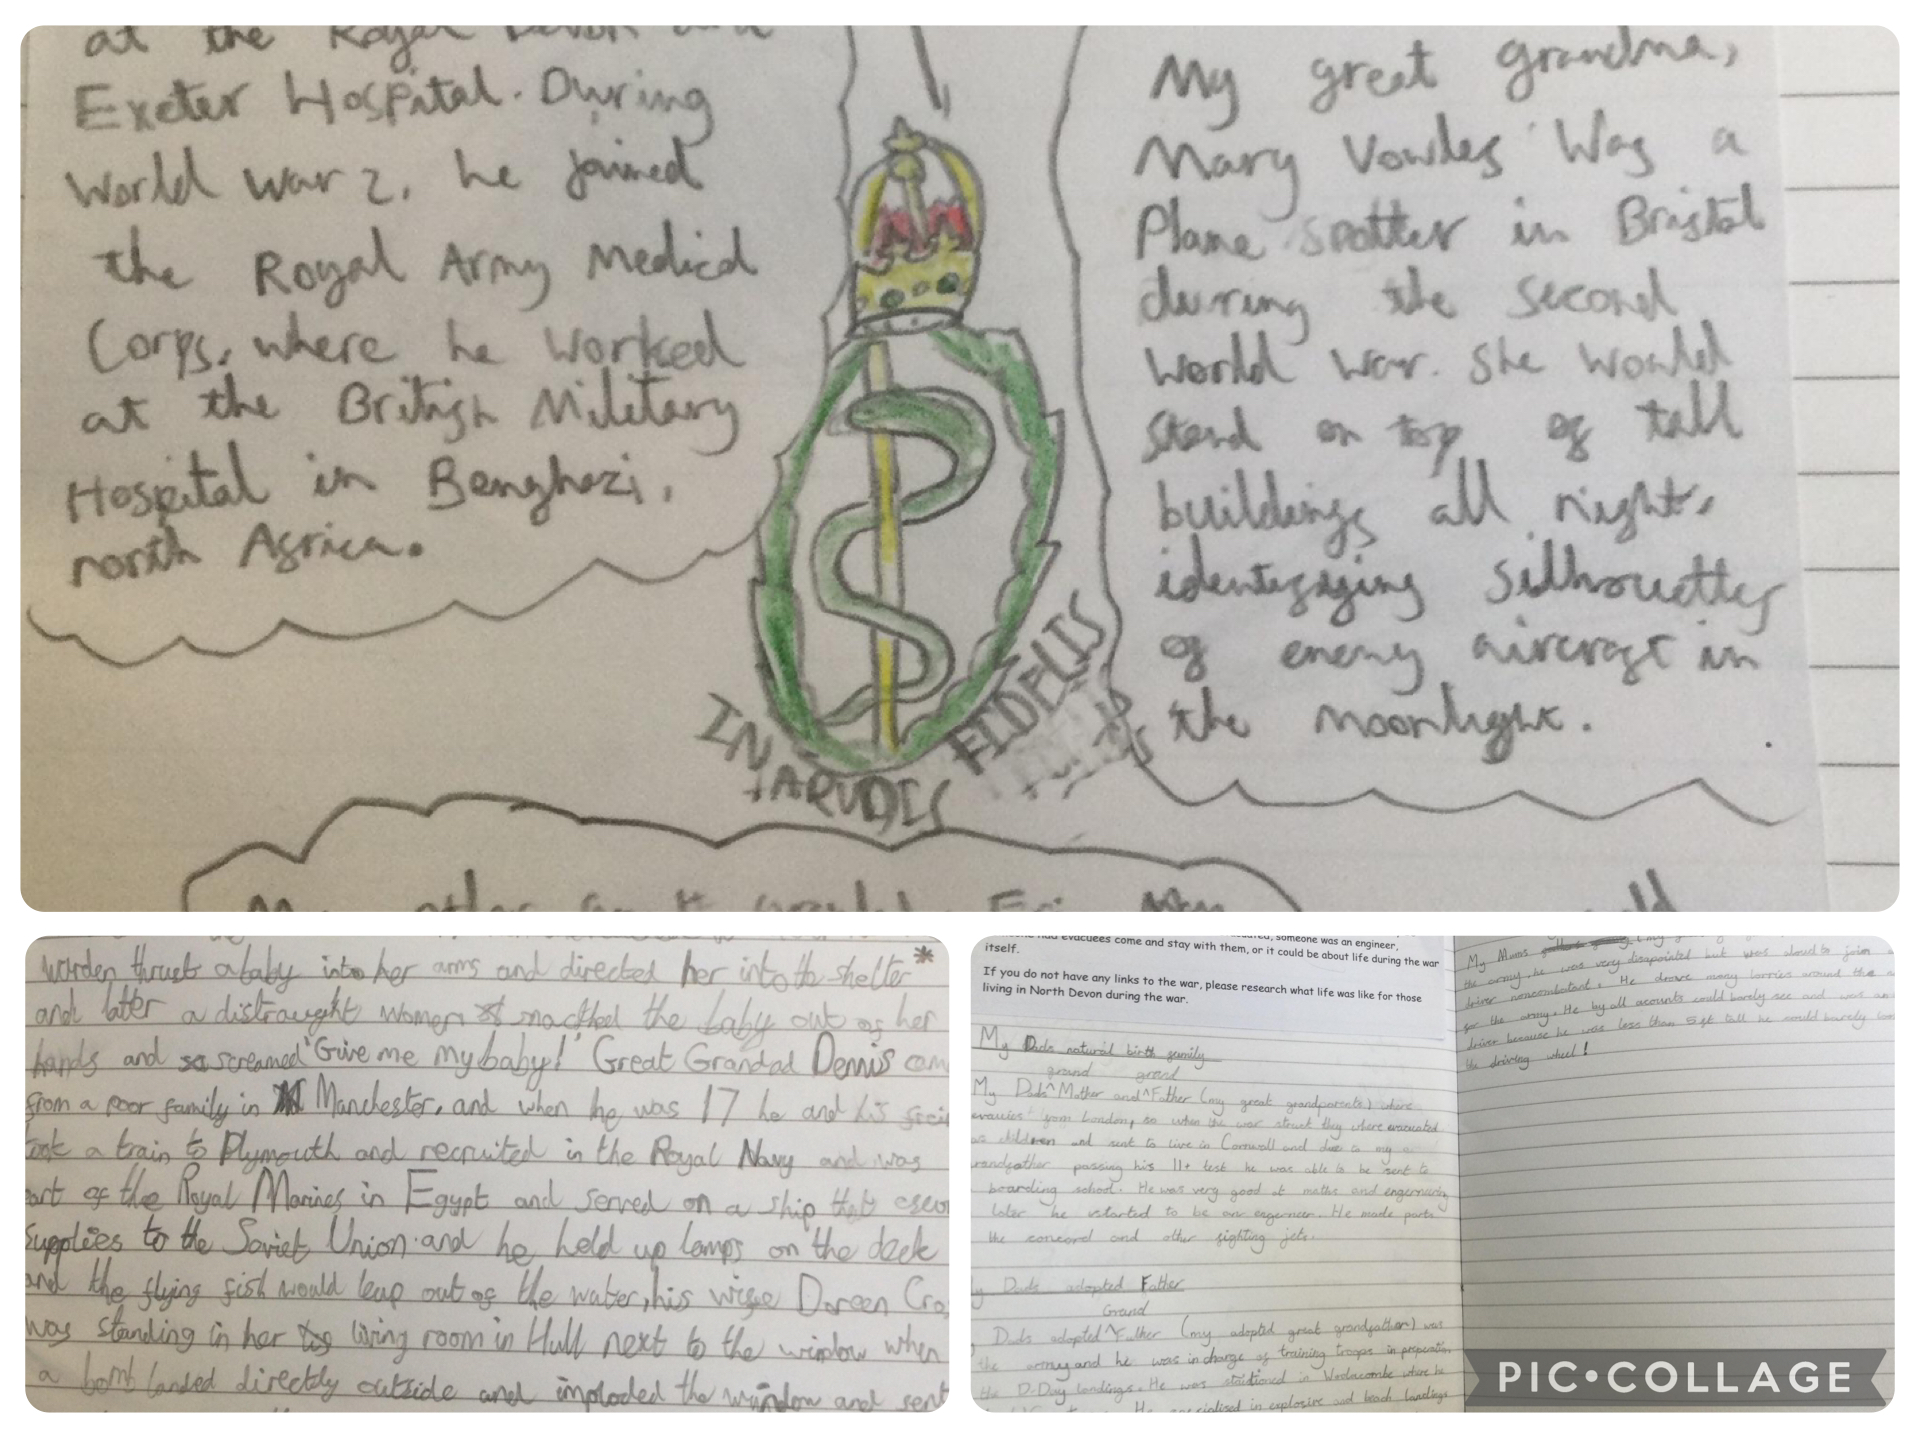 at the Royal Devon and
Exeter Hospital. During
World War 2, he joined
the Royal Army Medical
Corps, where he worked
at the British Military
Hospital in Benghazi,
north Africa.
My great grandma,
Mary Vowles Was a
Plane spotter in Bristol
during the second
World war. She would
stand on top of tall
buildings all night,
identifying silhouettes
of enemy aircraft in
the moonlight.
IN ARUDIS FIDELIS
My other great
warden thrust a baby into her arms and directed her into the shelter *
and later a distraught women snactked the baby out of her
hands and screamed 'Give me my baby!' Great Grandad Dennis
from a poor family in Manchester, and when he was 17 he and his
took a train to Plymouth and recruited in the Royal Navy and was
part of the Royal Marines in Egypt and served on a ship that
supplies to the Soviet Union and he held up lamps on the deck
and the flying fish would leap out of the water, his wife Doreen Cro
was standing in her living room in Hull next to the window when
a bomb landed directly outside and imploded the window and sent
evacuees come and stay with them, someone was an engineer,
itself. or it could be about life during the war
If you do not have any links to the war, please research what life was like for those
living in North Devon during the war.
My Dads natural birth family
grand grand
My Dads Mother and Father (my great grandparents) where
evacuies from London, so when the war struck they where evacuated
as children and sent to live in Cornwall and due to my
grandfather passing his 11+ test he was able to be sent to
boarding school. He was very good at maths and
later he to be an engerneer. He made parts
the concord and other fighting jets.
My Dads adopted Father
Grand
Dads adopted Father (my adopted great grandfather) was
the army and he was in charge of training troops in
the D-Day landings. He was stationed in Woolacombe where he
He specialised in explosive and beach landings
My Mums
the army, he was very disapointed but was aloud to join
driver noncombatant. He drove many lorries around the
for the army. He by all accounts could barely see and was
driver because he was less than 5ft tall he could barely
the driving wheel!
PIC•COLLAGE